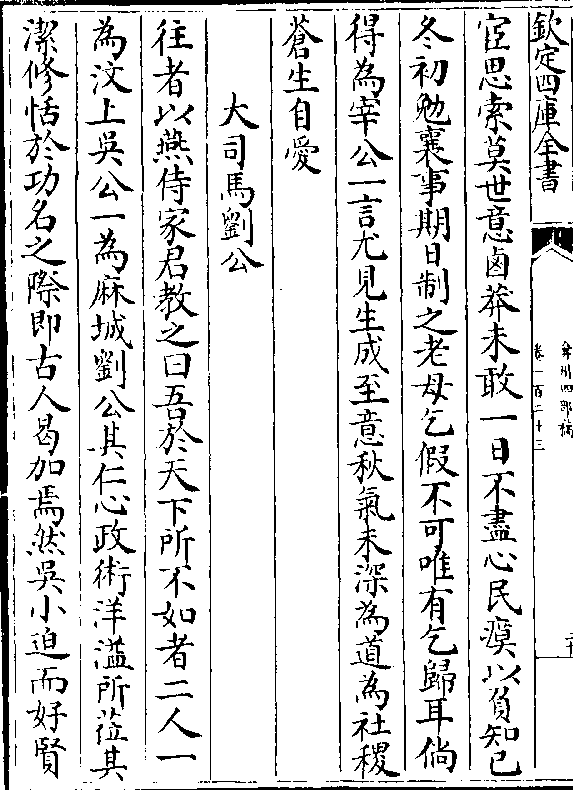 欽定四庫全書
弇州四部稿
卷一百二十三
二十
宦思索莫世意鹵莽未敢一日不盡心民瘼以負知己
冬初勉襄事期日制之老母乞假不可唯有乞歸耳倘
得為宰公一言尤見生成至意秋氣未深為道為社稷
蒼生自愛
大司馬劉公
往者以燕侍家君教之曰吾於天下所不如者二人一
為汶上吳公一為麻城劉公其仁心政術洋溢所蒞其
潔修恬於功名之際即古人曷加焉然吳小迫而好賢